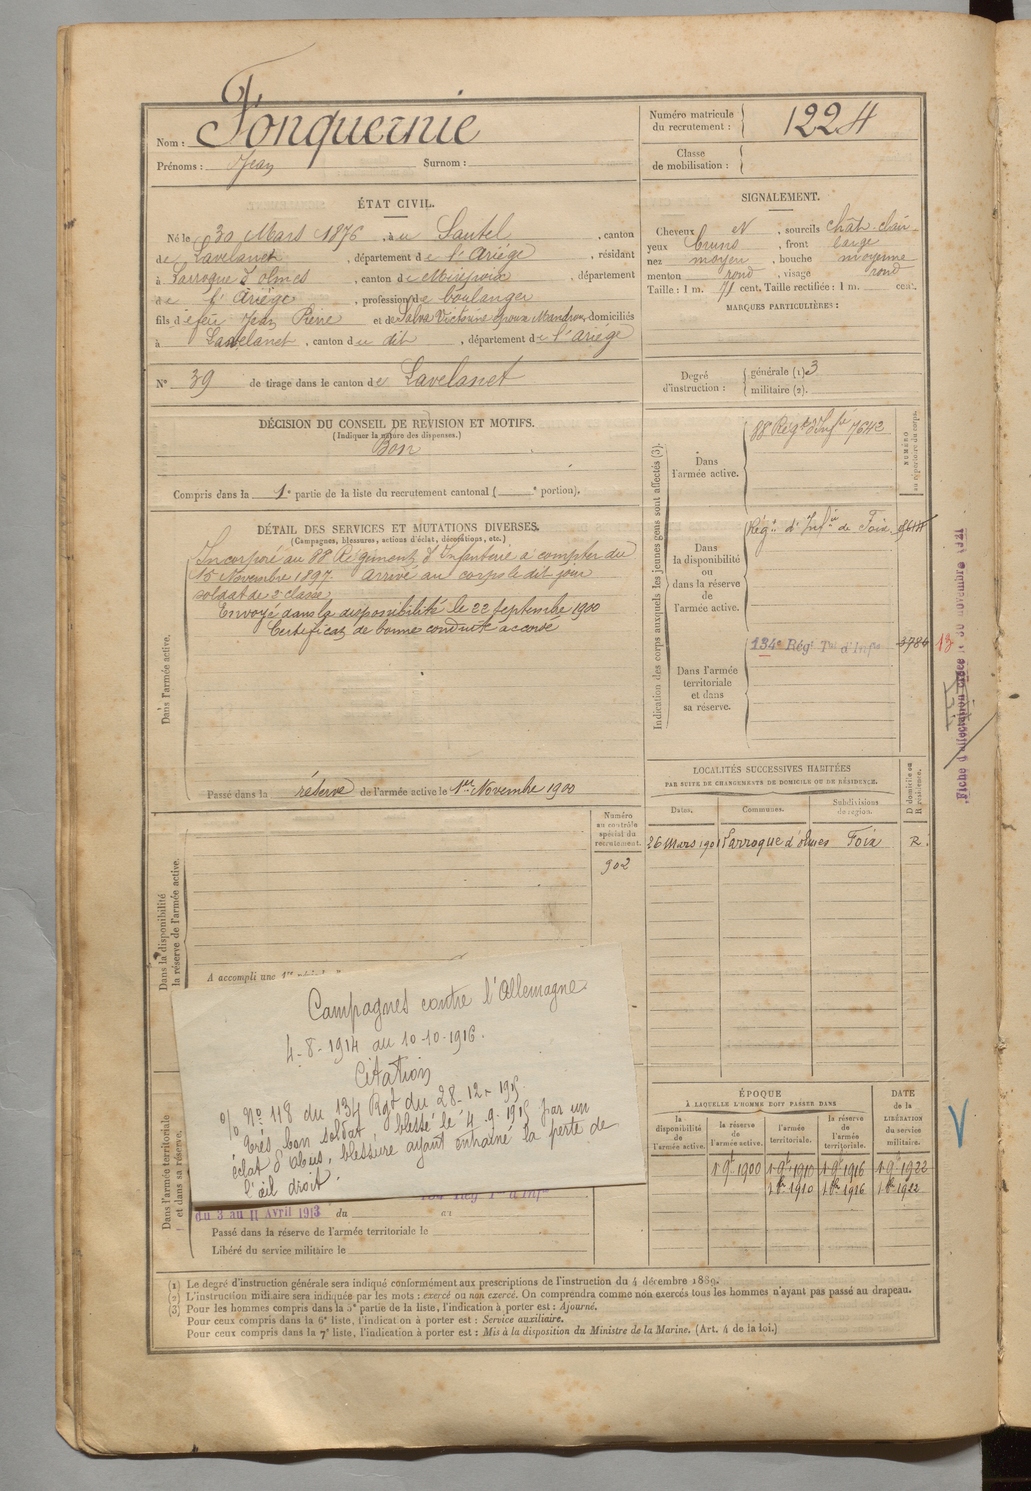 Nom : Fonquernie
Prénoms : Jean Surnom :
Numéro matricule du recrutement : 1224
Classe de mobilisation :
ÉTAT CIVIL.
Né le 30 Mars 1876, à Sautel, canton
de Lavelanet, département de l'Ariège, résidant
à Larroque d'olmes, canton de Mirepoix, département
de l'Ariège, profession de boulanger
fils de feu Jean Pierre et de Salva Victorine épouse Mandrou, domiciliés
à Lavelanet, canton du dit, département de l'Ariège
N° 39 de tirage dans le canton de Lavelanet
SIGNALEMENT.
Cheveux N, sourcils chât-clair
yeux bruns, front large
nez moyen, bouche moyenne
menton rond, visage rond
Taille : 1 m. 71 cent. Taille rectifiée : 1 m. cent.
MARQUES PARTICULIÈRES :
Degré d'instruction : générale (1) 3
militaire (2).
DÉCISION DU CONSEIL DE REVISION ET MOTIFS.
(Indiquer la nature des dispenses.)
Bon
Compris dans la 1e partie de la liste du recrutement cantonal ( e portion).
DÉTAIL DES SERVICES ET MUTATIONS DIVERSES.
(Campagnes, blessures, actions d'éclat, décorations, etc.)
Dans l'armée active.
Incorporé au 88 Régiment d'Infanterie à compter du
15 Novembre 1897. Arrivé au corps le dit jour
soldat de 2e classe
Envoyé dans la disponibilité le 22 Septembre 1900
Certificat de bonne conduite accordé
Passé dans la réserve de l'armée active le 1er Novembre 1900
Indication des corps auxquels les jeunes gens sont affectés (3).
NUMÉRO au répertoire du corps.
Dans l'armée active.
88 Régt d'Infie 7642
Dans la disponibilité ou dans la réserve de l'armée active.
Régt d'Infie de Foix
Dans l'armée territoriale et dans sa réserve.
134e Régt Tal d'Infie 3786
13
LOCALITÉS SUCCESSIVES HABITÉES
PAR SUITE DE CHANGEMENTS DE DOMICILE OU DE RÉSIDENCE.
Dates. Communes. Subdivisions de région. D domicile ou R résidence.
26 Mars 1901 Larroque d'olmes Foix R.
Numéro au contrôle spécial du recrutement.
902
Dans la disponibilité
la réserve de l'armée active.
A accompli une 1re
Campagnes contre l'Allemagne
4-8-1914 au 10-10-1916.
Citation
o/ No 118 du 134 Rgt du 28-12-1915
Très bon soldat blessé le 4-9-1915 par un
éclat d'obus, blessure ayant entraîné la perte de
l'œil droit.
Dans l'armée territoriale et dans sa réserve.
du 3 au 11 Avril 1913 du au
Passé dans la réserve de l'armée territoriale le
Libéré du service militaire le
ÉPOQUE
À LAQUELLE L'HOMME DOIT PASSER DANS
la disponibilité de l'armée active. la réserve de l'armée active. l'armée territoriale. la réserve de l'armée territoriale.
DATE de la LIBÉRATION du service militaire.
1 9bre 1900 1 9bre 1910 1 9bre 1916 1 9bre 1922
1 8bre 1910 1 8bre 1916 1 8bre 1922
(1) Le degré d'instruction générale sera indiqué conformément aux prescriptions de l'instruction du 4 décembre 1889.
(2) L'instruction militaire sera indiquée par les mots : exercé ou non exercé. On comprendra comme non exercés tous les hommes n'ayant pas passé au drapeau.
(3) Pour les hommes compris dans la 5e partie de la liste, l'indication à porter est : Ajourné.
Pour ceux compris dans la 6e liste, l'indication à porter est : Service auxiliaire.
Pour ceux compris dans la 7e liste, l'indication à porter est : Mis à la disposition du Ministre de la Marine. (Art. 4 de la loi.)